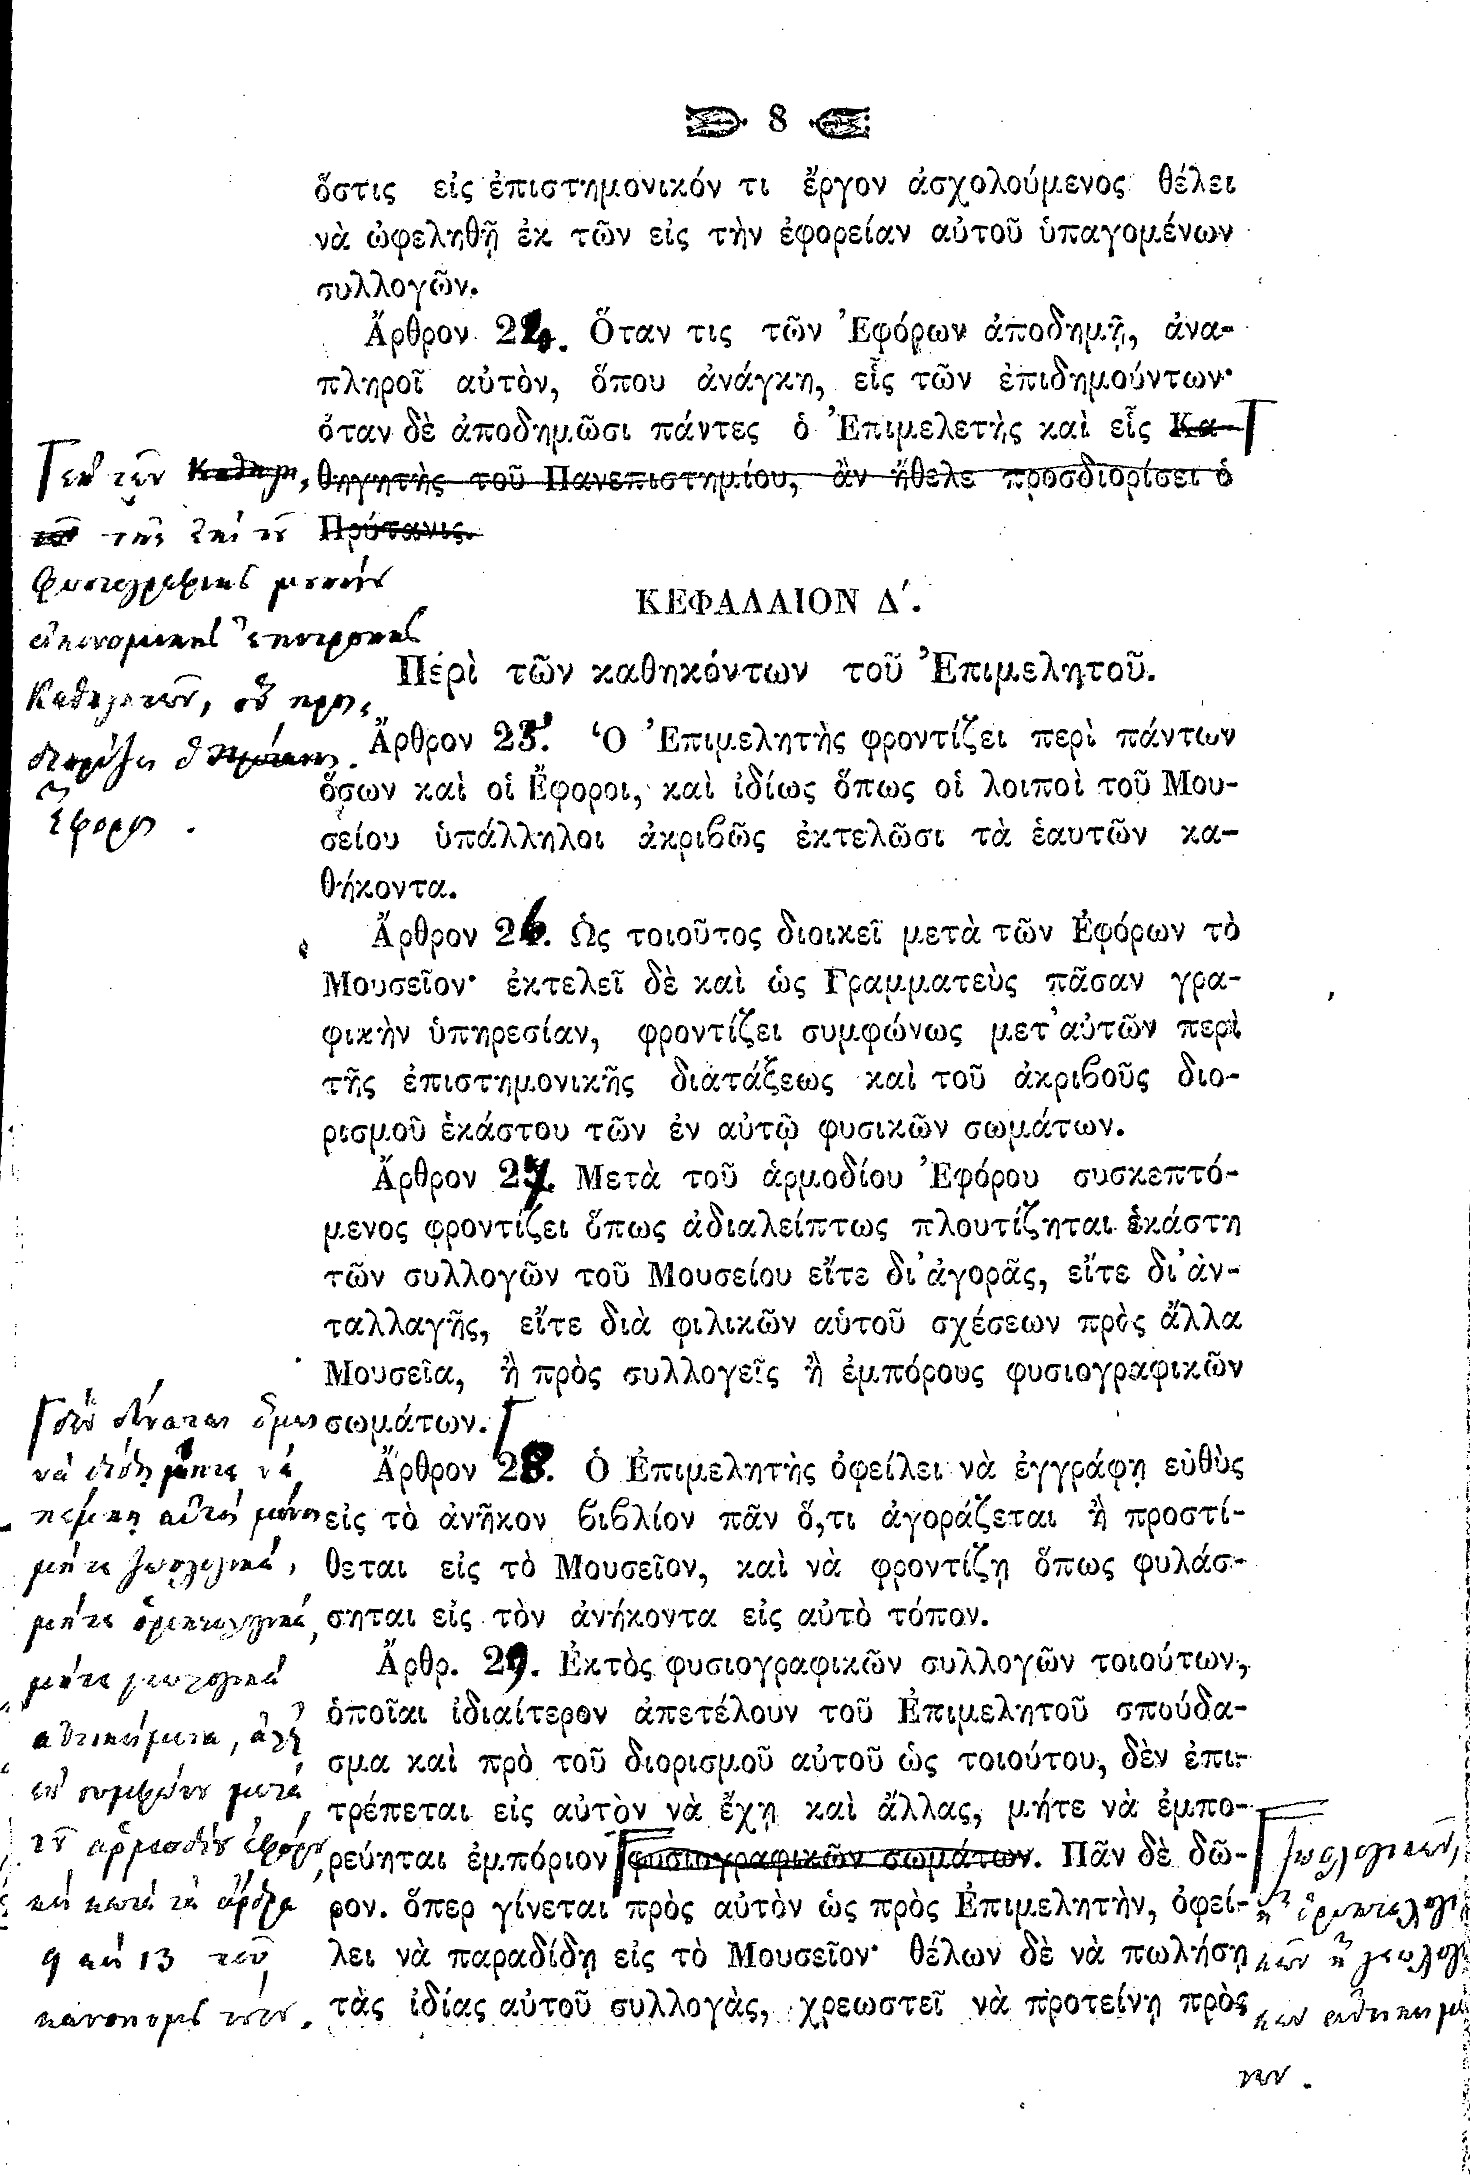 8
ὅστις εἰς ἐπιστημονικόν τι ἔργον ἀσχολούμενος θέλει
νὰ ὠφεληθῇ ἐκ τῶν εἰς τὴν ἐφορείαν αὐτοῦ ὑπαγομένων
συλλογῶν.
Ἄρθρον 24. Ὅταν τις τῶν Ἐφόρων ἀποδημῇ, ἀνα-
πληροῖ αὐτὸν, ὅπου ἀνάγκη, εἷς τῶν ἐπιδημούντων·
ὅταν δὲ ἀποδημῶσι πάντες ὁ Ἐπιμελετὴς καὶ εἷς Κα-
θηγητὴς τοῦ Πανεπιστημίου, ἂν ἤθελε προσδιορίσει ὁ
Πρύτανις.
ἐκ τῶν
τῆς ἐπὶ τοῦ
Φυσιογραφικοῦ μουσείου
οἰκονομικῆς ἐπιτροπῆς
Καθηγητῶν, ὃν προσ
διορίζει ὁ
Ἔφορος.
ΚΕΦΑΛΑΙΟΝ Δ΄.
Περὶ τῶν καθηκόντων τοῦ Ἐπιμελητοῦ.
Ἄρθρον 25. Ὁ Ἐπιμελητὴς φροντίζει περὶ πάντων
ὅσων καὶ οἱ Ἔφοροι, καὶ ἰδίως ὅπως οἱ λοιποὶ τοῦ Μου-
σείου ὑπάλληλοι ἀκριβῶς ἐκτελῶσι τὰ ἑαυτῶν κα-
θήκοντα.
Ἄρθρον 26. Ὡς τοιοῦτος διοικεῖ μετὰ τῶν Ἐφόρων τὸ
Μουσεῖον· ἐκτελεῖ δὲ καὶ ὡς Γραμματεὺς πᾶσαν γρα-
φικὴν ὑπηρεσίαν, φροντίζει συμφώνως μετ᾽ αὐτῶν περὶ
τῆς ἐπιστημονικῆς διατάξεως καὶ τοῦ ἀκριβοῦς διο-
ρισμοῦ ἑκάστου τῶν ἐν αὐτῷ φυσικῶν σωμάτων.
Ἄρθρον 27. Μετὰ τοῦ ἁρμοδίου Ἐφόρου συσκεπτό-
μενος φροντίζει ὅπως ἀδιαλείπτως πλουτίζηται ἑκάστη
τῶν συλλογῶν τοῦ Μουσείου εἴτε δι᾽ ἀγορᾶς, εἴτε δι᾽ ἀν-
ταλλαγῆς, εἴτε διὰ φιλικῶν αὑτοῦ σχέσεων πρὸς ἄλλα
Μουσεῖα, ἢ πρὸς συλλογεῖς ἢ ἐμπόρους φυσιογραφικῶν
σωμάτων.
δὲν δύναται ὅμως
νὰ δίδῃ μήτε νὰ
πέμπῃ αὐτὸς μόνος
μήτε ζωολογικὰ,
μήτε ὀρυκτολογικὰ,
μήτε γεωλογικὰ
ἀντικείμενα, ἀλλ᾽
ἐκ συμφώνου μετὰ
τοῦ ἁρμοδίου ἐφόρου,
καὶ κατὰ τὰ ἄρθρα
9 καὶ 13 τοῦ
κανονισμοῦ τούτου.
Ἄρθρον 28. Ὁ Ἐπιμελητὴς ὀφείλει νὰ ἐγγράφῃ εὐθὺς
εἰς τὸ ἀνῆκον βιβλίον πᾶν ὅ,τι ἀγοράζεται ἢ προστί-
θεται εἰς τὸ Μουσεῖον, καὶ νὰ φροντίζῃ ὅπως φυλάσ-
σηται εἰς τὸν ἀνήκοντα εἰς αὐτὸ τόπον.
Ἄρθρ. 29. Ἐκτὸς φυσιογραφικῶν συλλογῶν τοιούτων,
ὁποῖαι ἰδιαίτερον ἀπετέλουν τοῦ Ἐπιμελητοῦ σπούδα-
σμα καὶ πρὸ τοῦ διορισμοῦ αὐτοῦ ὡς τοιούτου, δὲν ἐπι-
τρέπεται εἰς αὐτὸν νὰ ἔχῃ καὶ ἄλλας, μήτε νὰ ἐμπο-
ρεύηται ἐμπόριον φυσιογραφικῶν σωμάτων. Πᾶν δὲ δῶ-
ρον. ὅπερ γίνεται πρὸς αὐτὸν ὡς πρὸς Ἐπιμελητὴν, ὀφεί-
λει νὰ παραδίδῃ εἰς τὸ Μουσεῖον· θέλων δὲ νὰ πωλήσῃ
τὰς ἰδίας αὐτοῦ συλλογὰς, χρεωστεῖ νὰ προτείνῃ πρὸς
ζωολογικῶν,
ἢ ὀρυκτολογι
κῶν ἢ γεωλογι
κῶν ἀντικειμέ
νων.